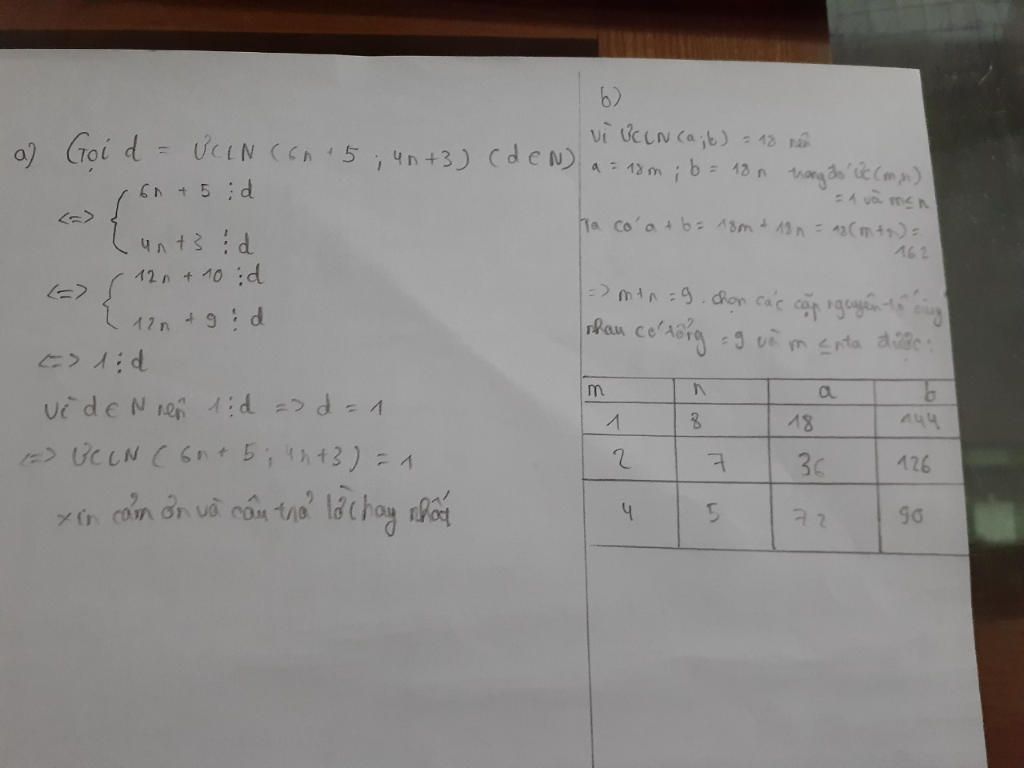 a) Gọi d = ƯCLN (6n + 5 ; 4n + 3) (d ∈ N)
<=> { 6n + 5 ⋮ d
4n + 3 ⋮ d
<=> { 12n + 10 ⋮ d
12n + 9 ⋮ d
<=> 1 ⋮ d
Vì d ∈ N nên 1 ⋮ d => d = 1
<=> ƯCLN ( 6n + 5 ; 4n + 3 ) = 1
xin cảm ơn và câu trả lời hay nhất
b)
Vì ƯCLN (a ; b) = 18 nên
a = 18m ; b = 18n trong đó ƯC(m,n)
= 1 và m ≤ n
Ta có a + b = 18m + 18n = 18(m+n) =
162
=> m+n = 9 . chọn các cặp nguyên tố cùng
nhau có tổng = 9 và m ≤ n ta được :
m n a b
1 8 18 144
2 7 36 126
4 5 72 90